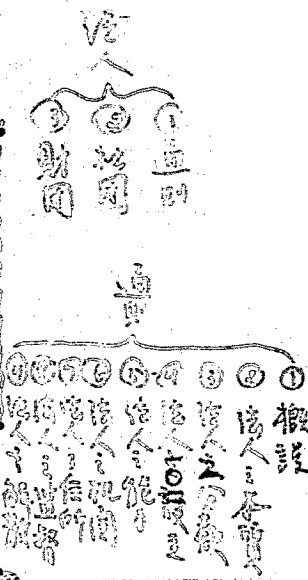 法人
①通則
②社團
③財団
通則
①概説
②法人之本質
③法人之分类
④法人之設立
⑤法人之能力
⑥法人之机関
⑦法人之住所
⑧法人之监督
⑨法人之解散